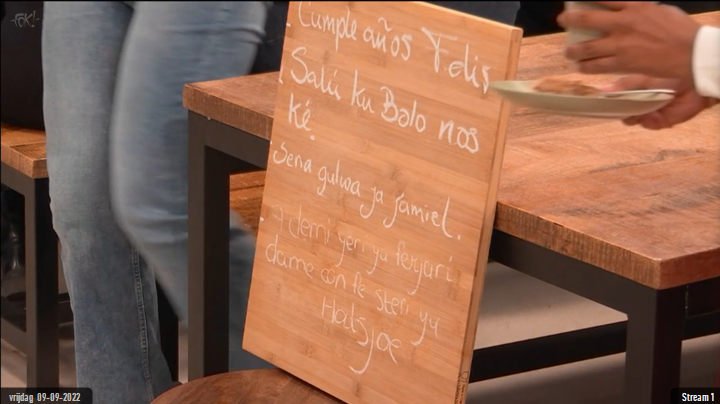 -FOK!-
Cumple años Felis
Salú ku Bolo nos
Ké.
Sena gulwa ja jamiel.
demi yen ya
dame con te sten ya
Hatsjoe
vrijdag 09-09-2022
Stream 1